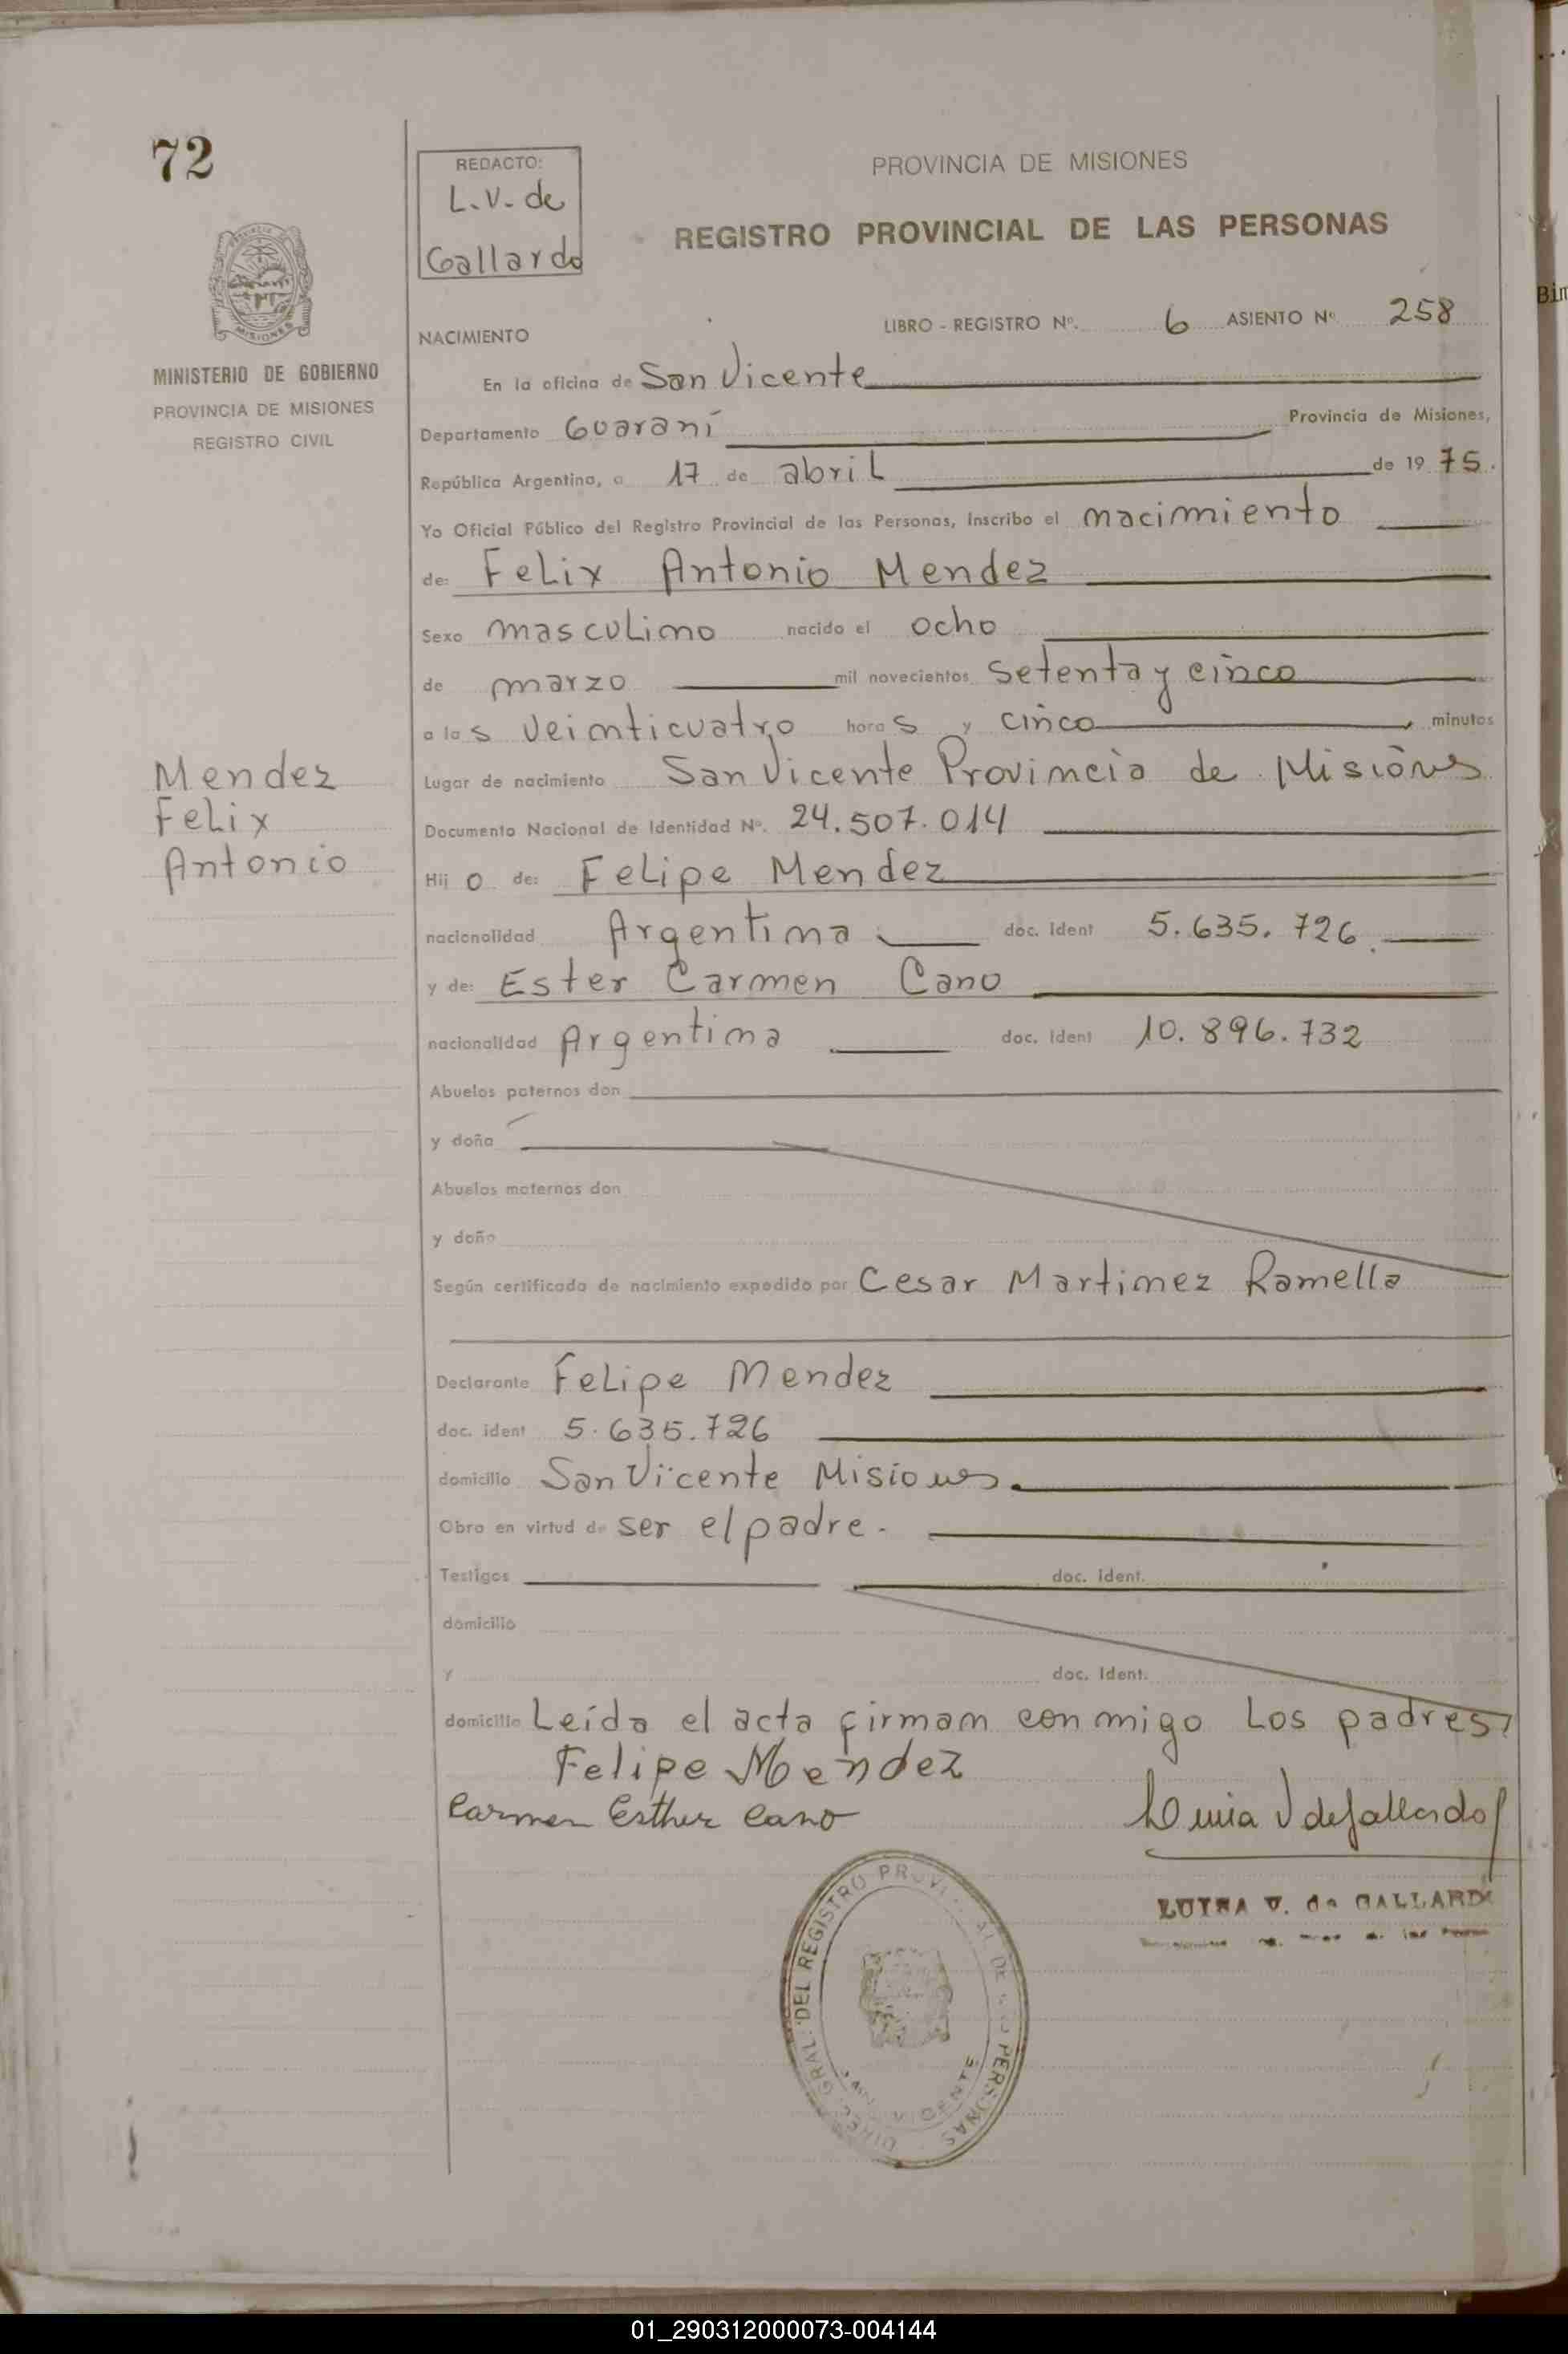 72
REDACTO:
L.V. de
Gallardo
PROVINCIA DE MISIONES
REGISTRO PROVINCIAL DE LAS PERSONAS
MISIONES
MINISTERIO DE GOBIERNO
PROVINCIA DE MISIONES
REGISTRO CIVIL
Bin
NACIMIENTO LIBRO - REGISTRO Nº. 6 ASIENTO Nº 258
En la oficina de San Vicente
Departamento Guaraní Provincia de Misiones,
República Argentina, a 17 de abril de 19 75.
Yo Oficial Público del Registro Provincial de las Personas, Inscribo el nacimiento
de: Felix Antonio Mendez
Sexo masculino nacido el ocho
de marzo mil novecientos setenta y cinco
a las veinticuatro horas y cinco minutos
Lugar de nacimiento San Vicente Provincia de Misiones
Mendez
Felix
Antonio
Documento Nacional de Identidad Nº. 24.507.014
Hijo de: Felipe Mendez
nacionalidad Argentina doc. ident 5.635.726.
y de: Ester Carmen Cano
nacionalidad Argentina doc. ident 10.896.732
Abuelos paternos don
y doña
Abuelos maternos don
y doña
Según certificado de nacimiento expedido por Cesar Martinez Ramella
Declarante Felipe Mendez
doc. ident 5.635.726
domicilio San Vicente Misiones.
Obra en virtud de ser el padre.
Testigos doc. ident.
domicilio
y doc. ident.
domicilio Leída el acta firman conmigo Los padres
Felipe Mendez
Carmen Esther Cano
LUISA V. de GALLARDO
DIREC. GRAL. DEL REGISTRO PROVINCIAL DE LAS PERSONAS
SAN VICENTE
01_290312000073-004144